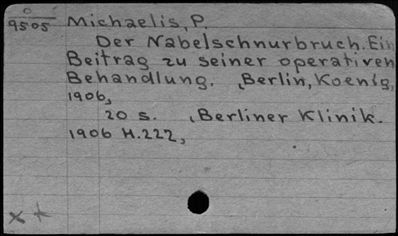 O
9505
Michaelis, P.
Der Nabelschnurbruch. Ein
Beitrag zu seiner operativen
Behandlung. (Berlin, Koenig,
1906,
20 s. (Berliner Klinik.
1906 H.222,
x +